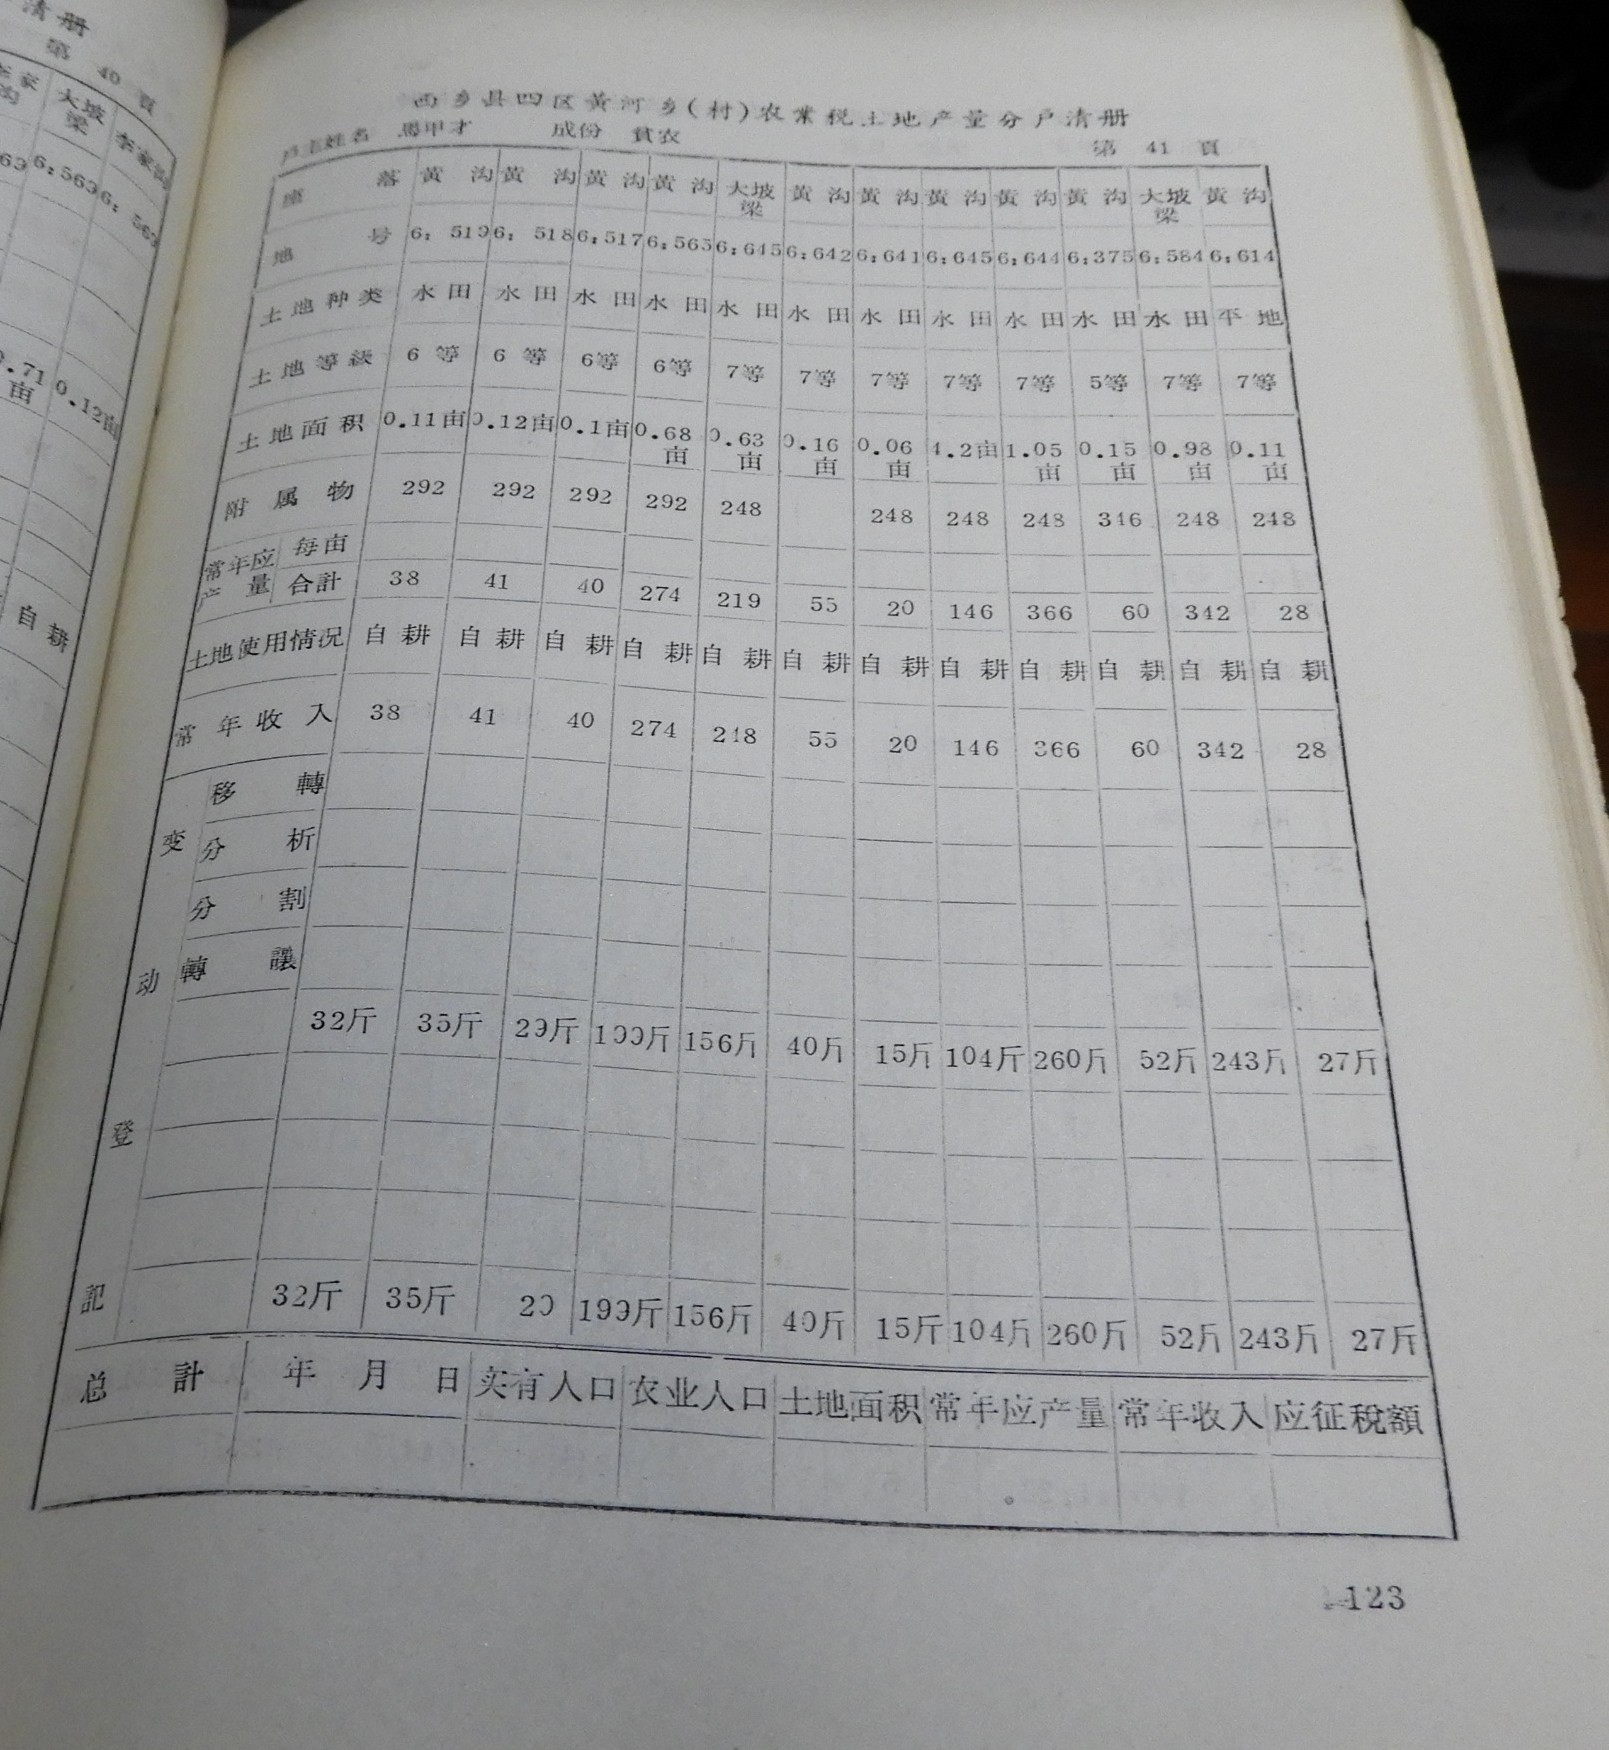 清册
第 40 頁
大坡梁 李家沟
6:563 6:563
0.71亩 0.12亩
自耕
西乡县四区黄河乡(村)农業税土地产量分户清册
户主姓名 馬甲才 成份 貧农 第 41 頁
座落 黄沟 黄沟 黄沟 黄沟 大坡梁 黄沟 黄沟 黄沟 黄沟 黄沟 大坡梁 黄沟
地号 6:519 6:518 6:517 6:565 6:645 6:642 6:641 6:645 6:644 6:375 6:584 6:614
土地种类 水田 水田 水田 水田 水田 水田 水田 水田 水田 水田 水田 平地
土地等級 6等 6等 6等 6等 7等 7等 7等 7等 7等 5等 7等 7等
土地面积 0.11亩 0.12亩 0.1亩 0.68亩 0.63亩 0.16亩 0.06亩 4.2亩 1.05亩 0.15亩 0.98亩 0.11亩
附属物 292 292 292 292 248 248 248 248 346 248 248
常年应产量 每亩
合計 38 41 40 274 219 55 20 146 366 60 342 28
土地使用情况 自耕 自耕 自耕 自耕 自耕 自耕 自耕 自耕 自耕 自耕 自耕 自耕
常年收入 38 41 40 274 248 55 20 146 366 60 342 28
变动登記
移轉
分析
分割
轉讓
32斤 35斤 29斤 199斤 156斤 40斤 15斤 104斤 260斤 52斤 243斤 27斤
32斤 35斤 29 199斤 156斤 40斤 15斤 104斤 260斤 52斤 243斤 27斤
总計 年月日 实有人口 农业人口 土地面积 常年应产量 常年收入 应征税額
123